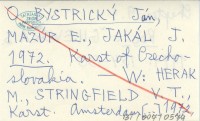 O. BYSTRICKÝ Ján,
MAZÚR E., JAKÁL J.
1972. Karst of Czecho-
slovakia. — W: HERAK
M., STRINGFIELD V. T.,
Karst. Amsterdam, 1972